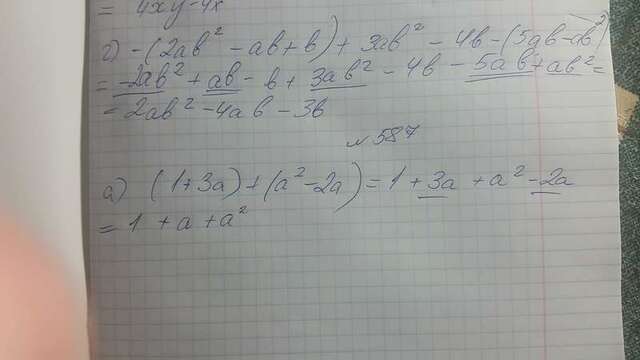 = 4xy-4x
г) -(2ab² - ab + b) + 3ab² - 4b - (5ab - ab²)
= -2ab² + ab - b + 3ab² - 4b - 5ab + ab² =
= 2ab² - 4ab - 3b
№ 587
а) (1+3a)+(a²-2a) = 1 + 3a + a² - 2a
= 1 + a + a²